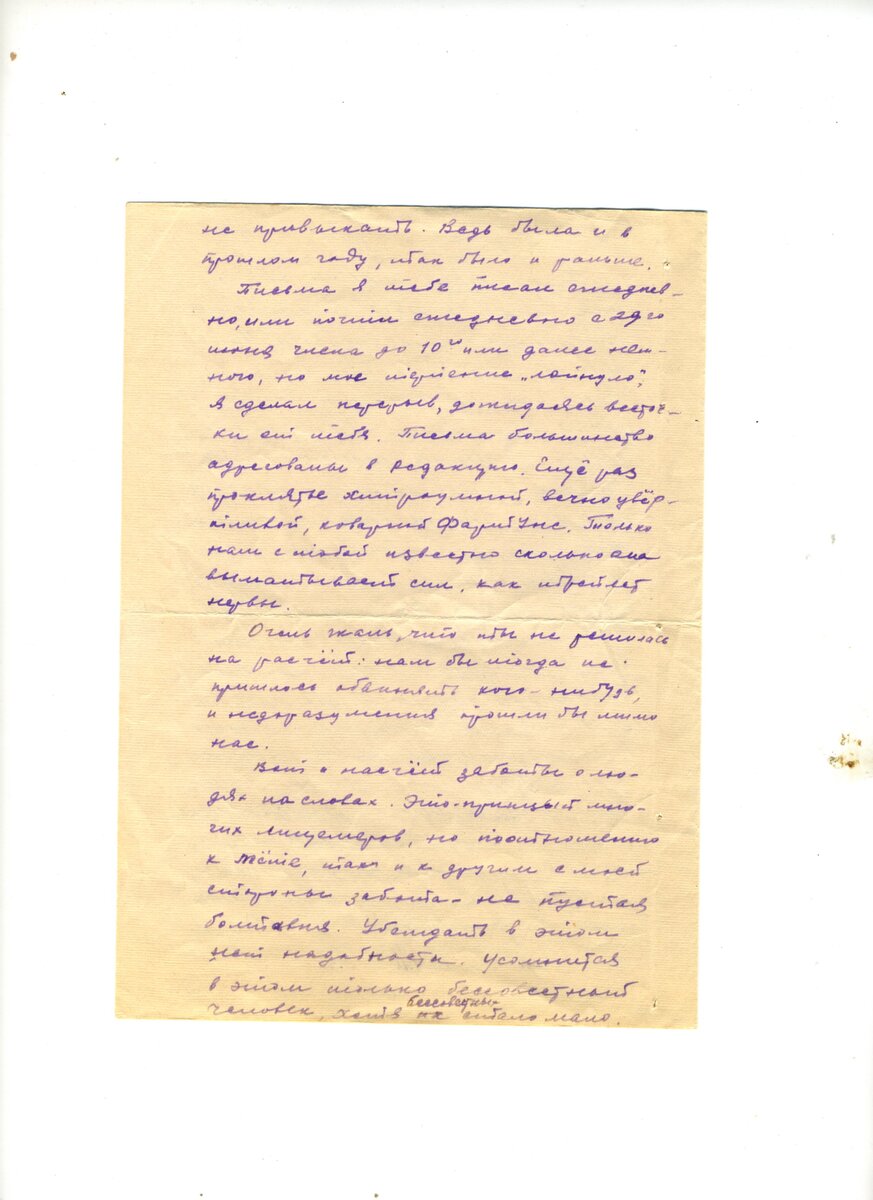 не привыкать. Ведь была и в
прошлом году, так было и раньше.
Письма я тебе писал ежеднев-
но, или почти ежедневно с 29го
июня числа до 10го или далее нем-
ного, но мое терпение „лопнуло",
я сделал перерыв, дожидаясь весточ-
ки от тебя. Письма большинство
адресованы в редакцию. Ещё раз
проклятье хитроумной, вечно увёр-
тливой, коварной
Только
нам с тобой известно сколько она
выматывает сил, как треплет
нервы.
Очень жаль, что ты не решилась
на расчёт: нам бы тогда не
пришлось обвинять кого-нибудь,
и недоразумения прошли бы мимо
нас.
Вот и насчёт заботы о лю-
дях на словах. Это-принцып мно-
гих лицемеров, но поотношению
к Тёте, так и к другим с моей
стороны забота - не пустая
болтавня. Убеждать в этом
нет надобности. Усомнится
в этом только бессовестный
человек, хотя их бессовестных стало мало.